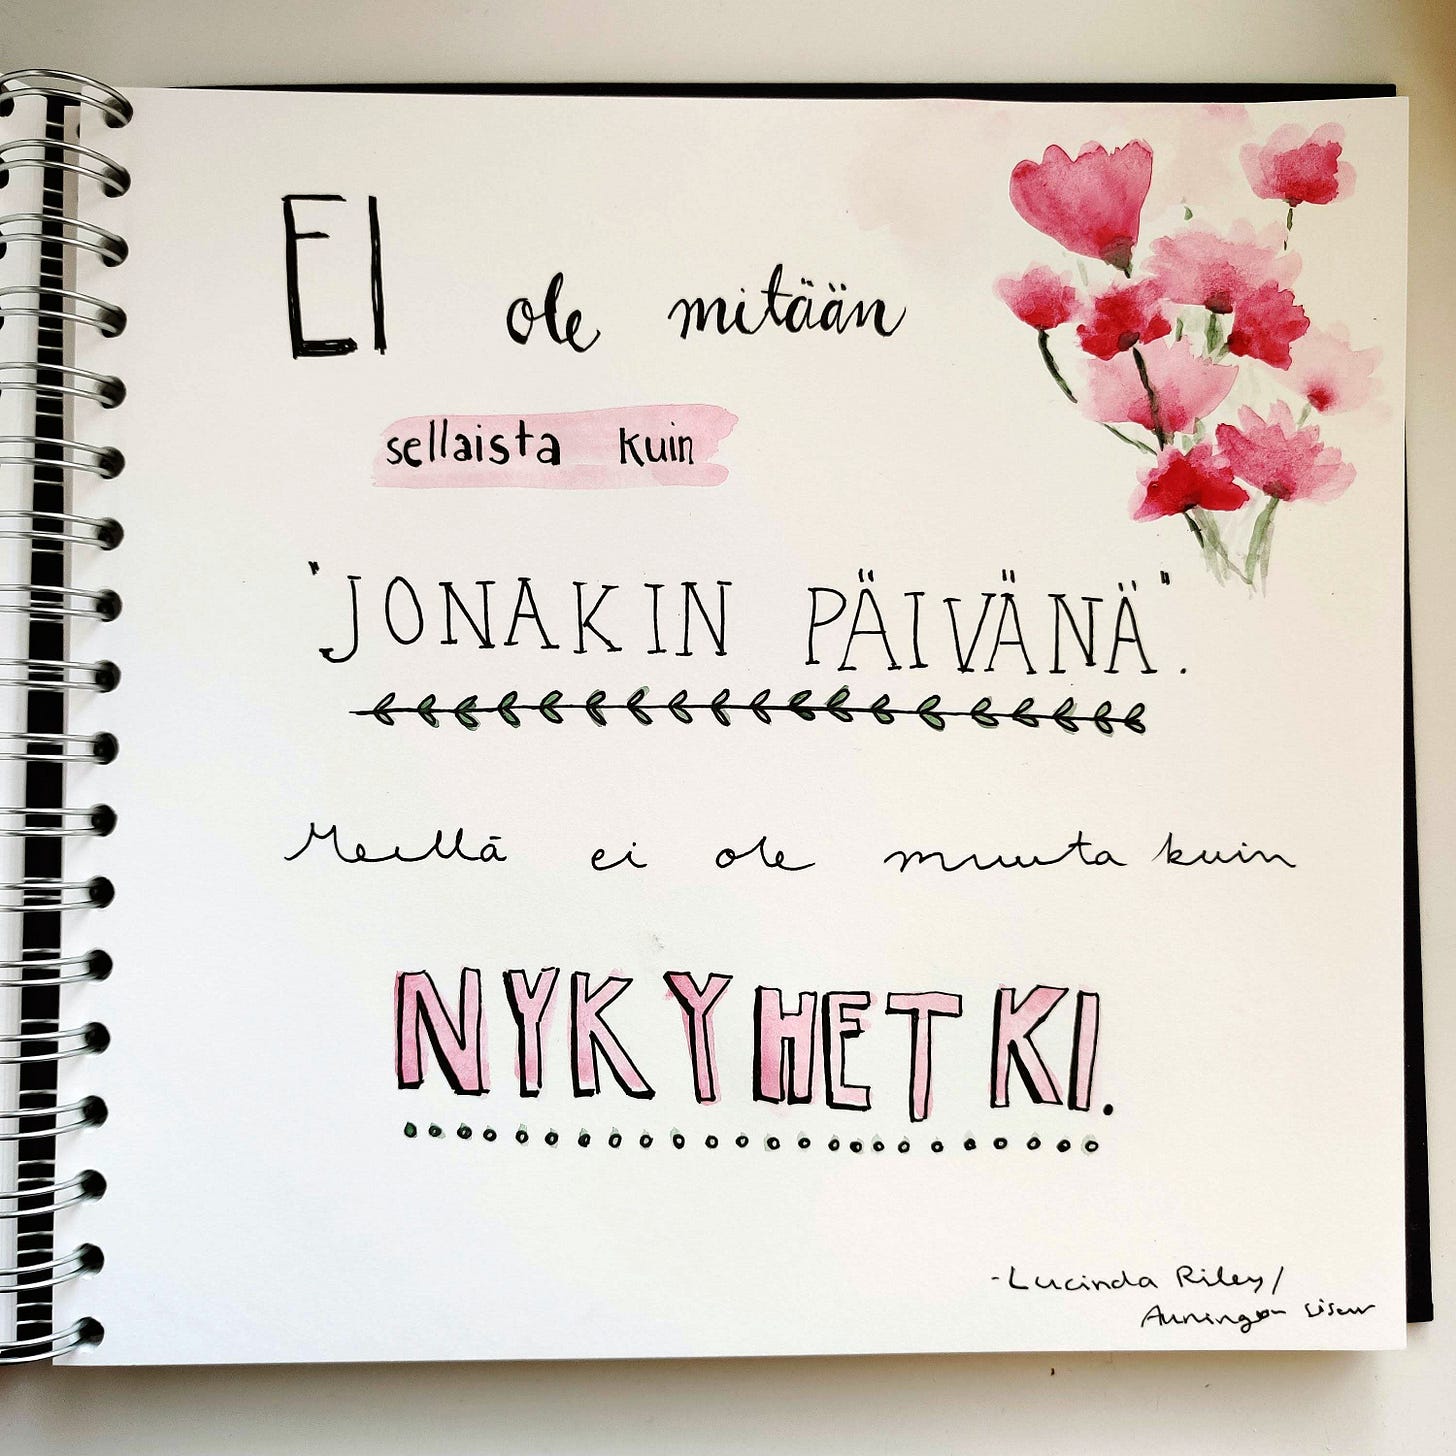 EI ole mitään
sellaista kuin
"JONAKIN PÄIVÄNÄ".
Meillä ei ole muuta kuin
NYKYHETKI.
-Lucinda Riley/
Auringon sisar